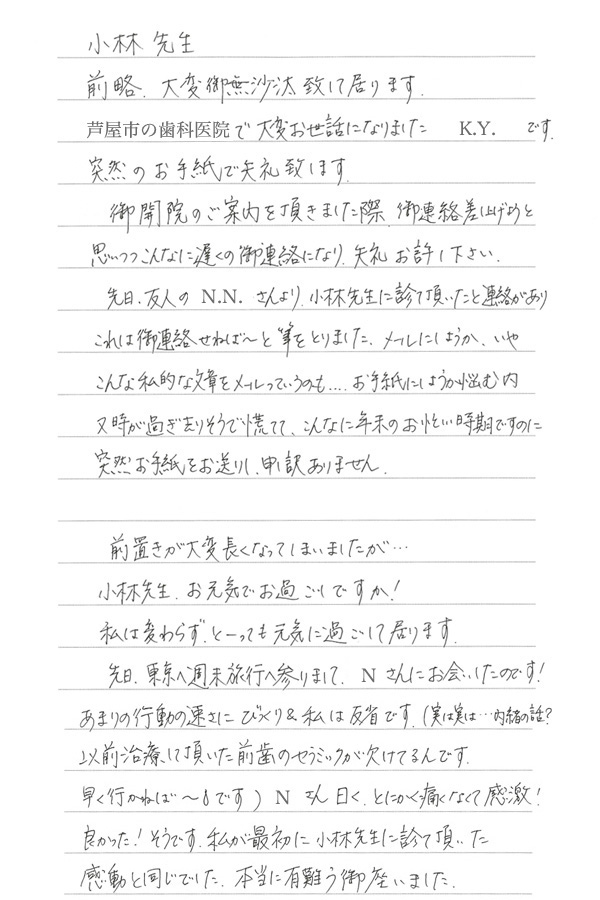 小林 先生
前略、大変御無沙汰致して居ります。
芦屋市の歯科医院で大変お世話になりました K.Y. です。
突然のお手紙で失礼致します。
御開院のご案内を頂きました際、御連絡差上げめと
思いつつこんなに遅くの御連絡になり、失礼お許し下さい。
先日、友人の N.N. さんより、小林先生に診て頂いたと連絡があり
これは御連絡せねば〜と筆をとりました。メールにしようか、いや
こんな私的な文章をメールっていうのも.... お手紙にしようか悩む内
又時が過ぎ去りそうで慌てて、こんなに年末のお忙しい時期ですのに
突然お手紙をお送りし、申し訳ありません。
前置きが大変長くなってしまいましたが…
小林先生、お元気でお過ごしですか！
私は変わらず、とーっても元気に過ごして居ります。
先日、東京へ週末旅行へ参りまして、N さんにお会いしたのです！
あまりの行動の速さに びっくり＆私は反省です。(実は実は…内緒の話?
以前治療して頂いた前歯のセラミックが欠けてるんです。
早く行かねば〜です) N さん曰く、とにかく痛くなくて感激！
良かった！そうです。私が最初に小林先生に診て頂いた
感動と同じでした。本当に有難う御座いました。